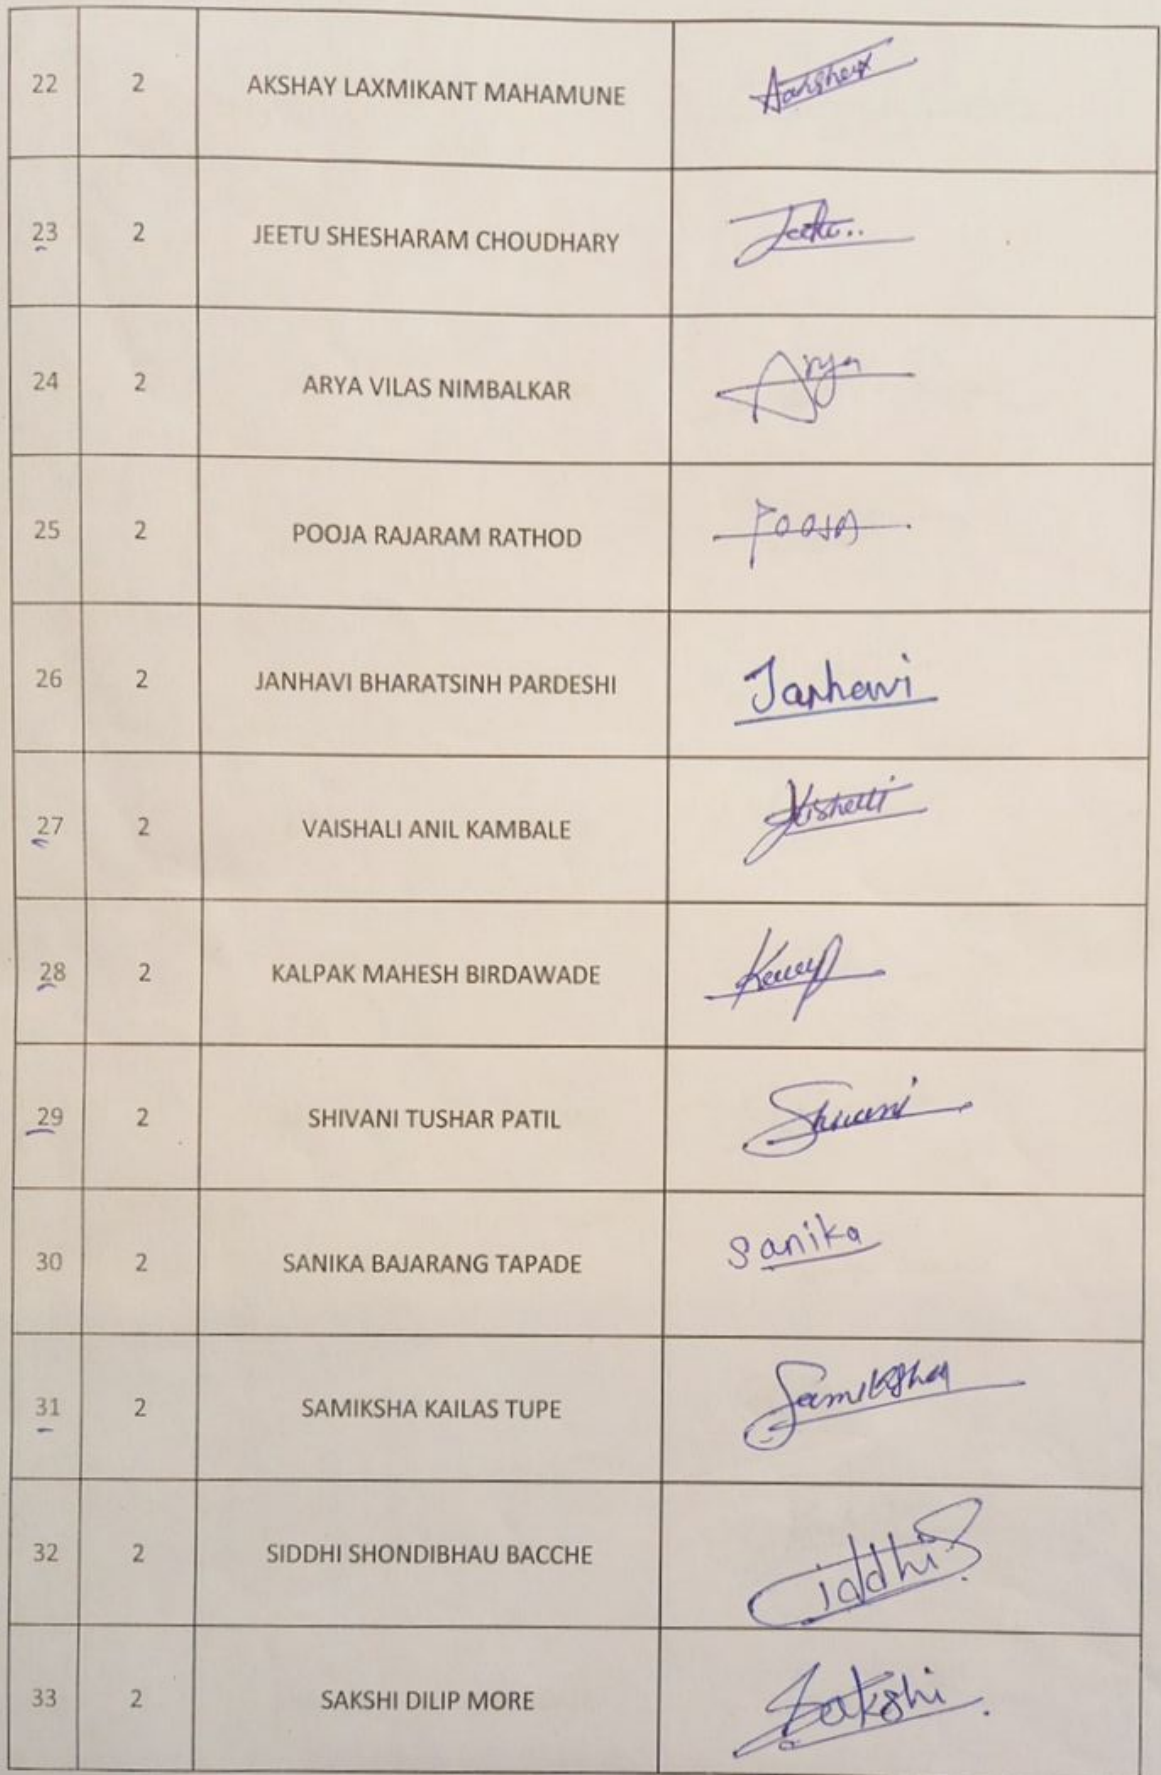 22 2 AKSHAY LAXMIKANT MAHAMUNE
23 2 JEETU SHESHARAM CHOUDHARY Jeetu..
24 2 ARYA VILAS NIMBALKAR Arya
25 2 POOJA RAJARAM RATHOD POOJA
26 2 JANHAVI BHARATSINH PARDESHI Janhavi
27 2 VAISHALI ANIL KAMBALE
28 2 KALPAK MAHESH BIRDAWADE
29 2 SHIVANI TUSHAR PATIL Shivani
30 2 SANIKA BAJARANG TAPADE Sanika
31 2 SAMIKSHA KAILAS TUPE Samiksha
32 2 SIDDHI SHONDIBHAU BACCHE Siddhi
33 2 SAKSHI DILIP MORE Sakshi.